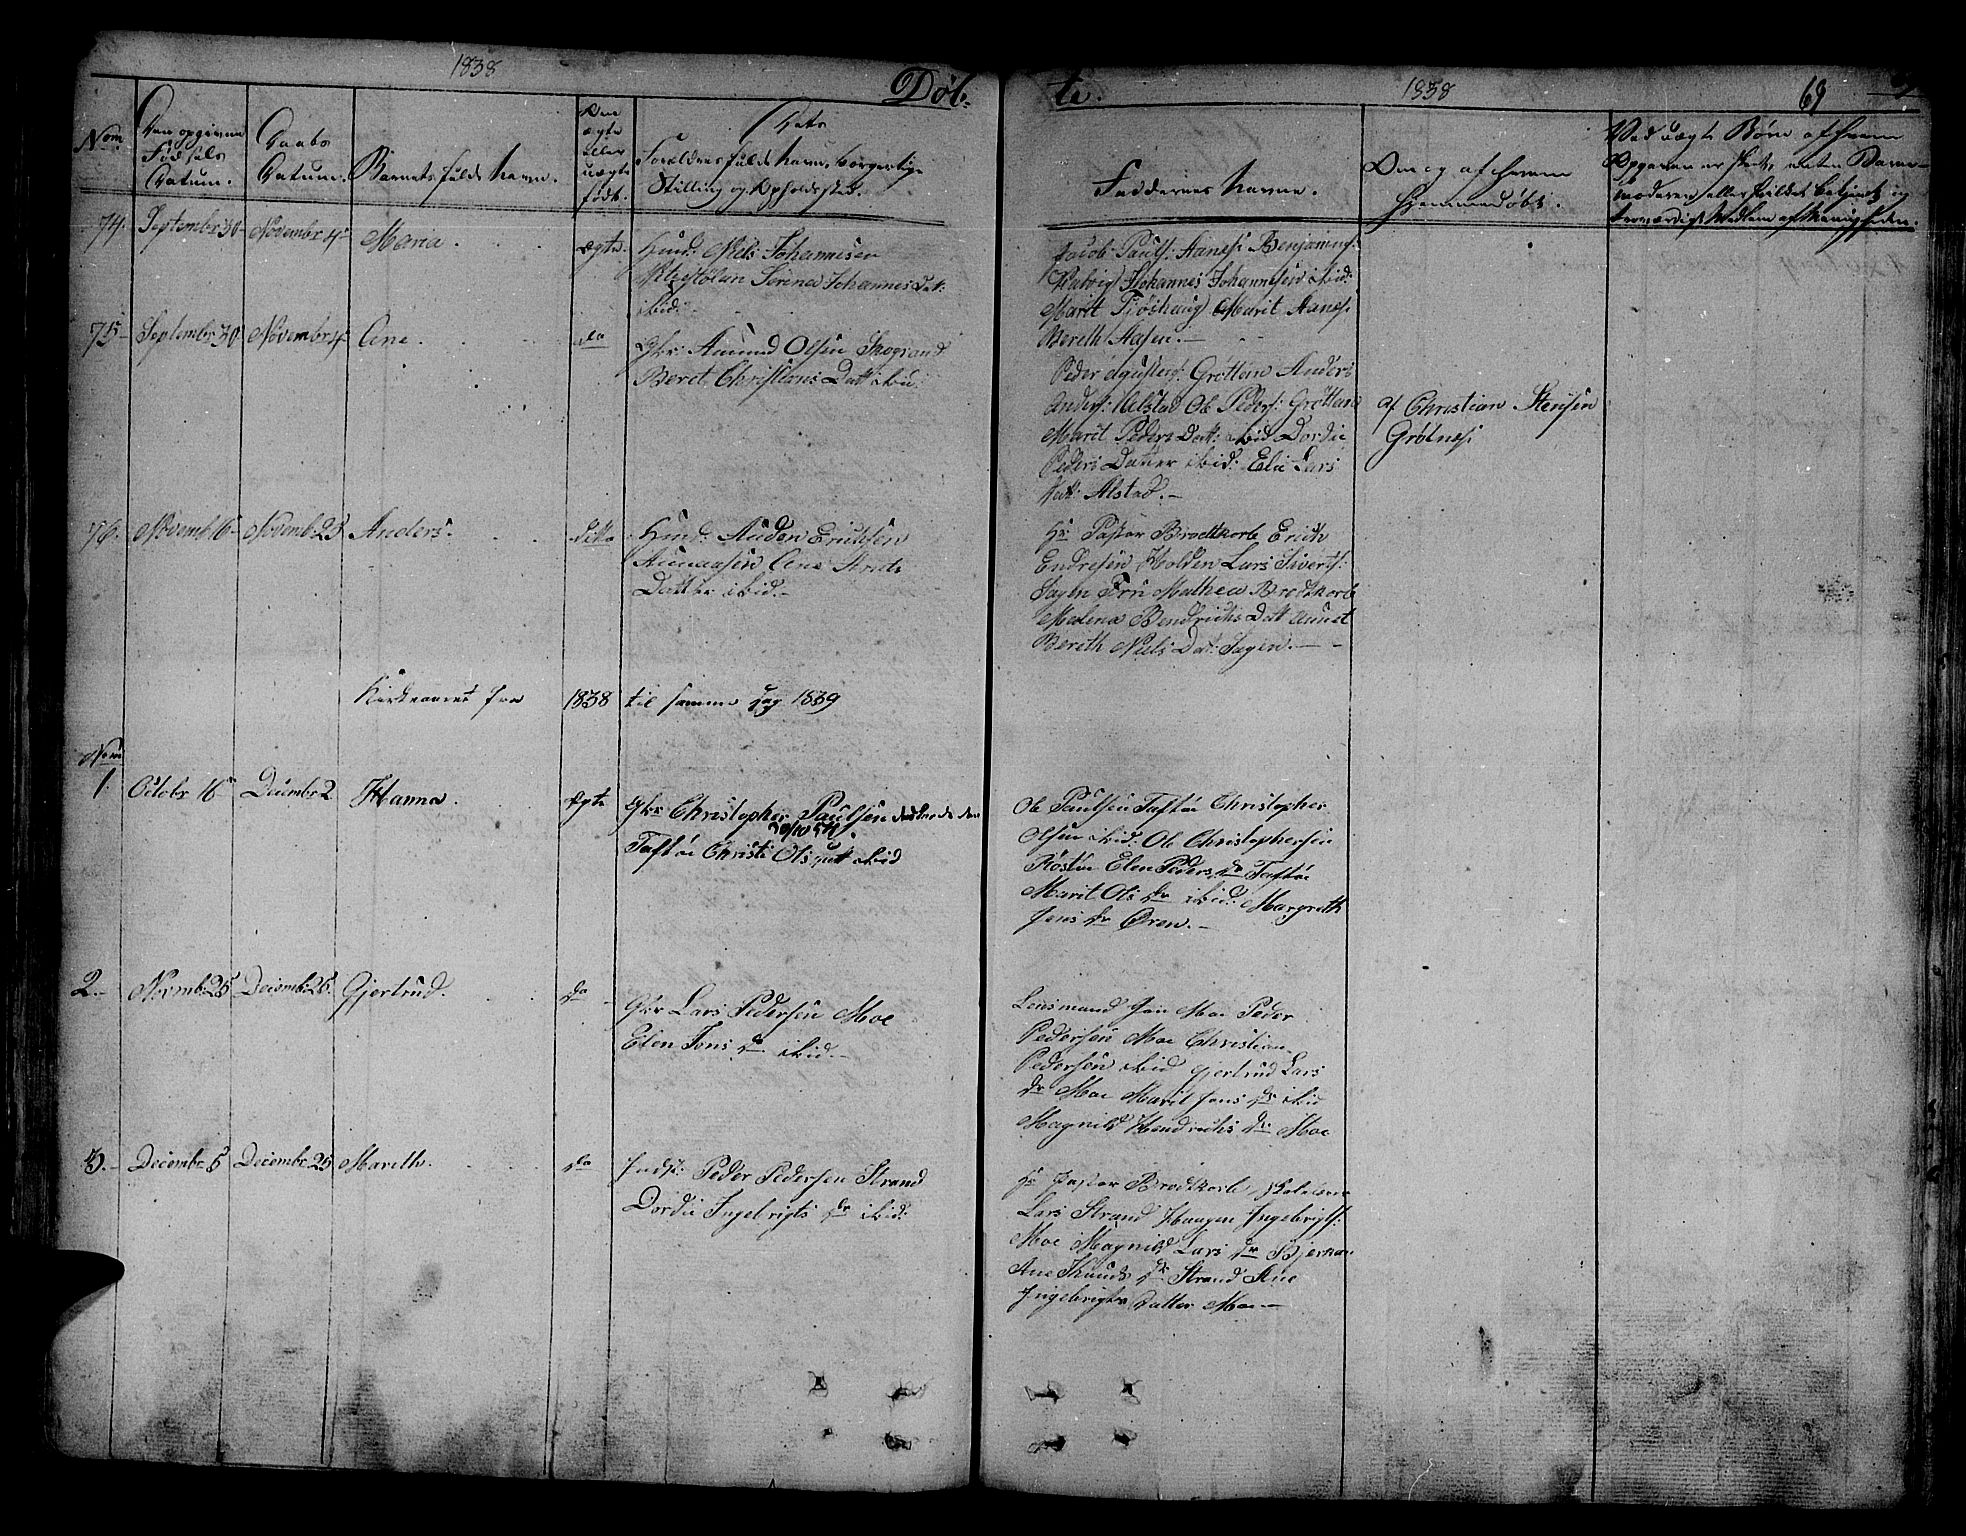 1838
Døb-
te.
1838
69
Nom
Den opgivne
Fødsels
Datum.
Daabs
Datum.
Barnets fulde Navn.
Om
ægte
eller
uægte
født.
Dets
Forældres fulde Navn, borgerlige
Stilling og Opholdssted.
Faddernes Navne.
Om og af hvem
hjemmedøbt.
Ved uægte Børn af hvem
Opgaven er skeet, enten Barne-
moderen eller
troværdigt Medlem af Menigheden.
74. Septembr 30 Novembr 4 Maria. ægte.
Huusm: Niels Johannesen
Sørena Johannes Datt:
ibid:
Jacob Pauls: Aanes: Benjamins:
Johannes Johannesen ibid:
Marit Marit Aanes:
Bereth Aasen.
75 Septembr 30 Novembr 4 Ane. do
Gbr: Amund Olsen Skogrand
Beret Christians Datt ibid:
Peder Grøtten Anders
Anders: Alstad Ole Peders: Grøttem
Marit Peders Datt: ibid Dordie
Peders Datter ibid: Elie Lars
Datt: Alstad.
af Christian Stensen
Grøtnes:
76. Novemb 16 Novemb: 25 Anders. ditto
Huusm: Auden Ericksen
Aunaasen Ane Arnts
Datter ibid.
Hr: Pastor Brodtkorb Erich
Endresen Holden Lars Siverts:
Sagen Fru Mathea Brodtkorb
Malena Bendrichs Datt Aunet
Bereth Niels Dat: Sagen.
Kirkeaaret fra 1838 til samme Dag 1839
Nom
1. Octobr 16 Decembr 2 Hanna. ægte
Gbr Christopher Paulsen
Taftøe Christi Ols Datt ibid
Ole Paulsen Taftøe Christopher
Olsen ibid: Ole Christophersen
Røstøe Elen Peders Dr Taftøe
Marit Ols Dr ibid: Margreth
Jens Dr Øren.
2. Novemb: 25 Decemb: 26. Gjertrud. do
Gbr Lars Pedersen Moe
Elen Jons Dr ibid.
Lensmand Jon Moe Peder
Pedersen Moe Christian
Pedersen ibid Gjertrud Lars
Dr Moe Marit Jons Dr ibid
Magnild Hendrichs Dr: Moe
3. Decembr 5 Decembr 25 Mareth. do
Indst: Peder Pedersen Strand
Dordie Ingebrigts Dr ibid:
Hr Pastor Brodtkorb
Lars Strand Haagen Ingebrigts:
Moe Magnild Lars Dr
Ane Knuds Dr Strand Ane
Ingebrigts Datter Moe.